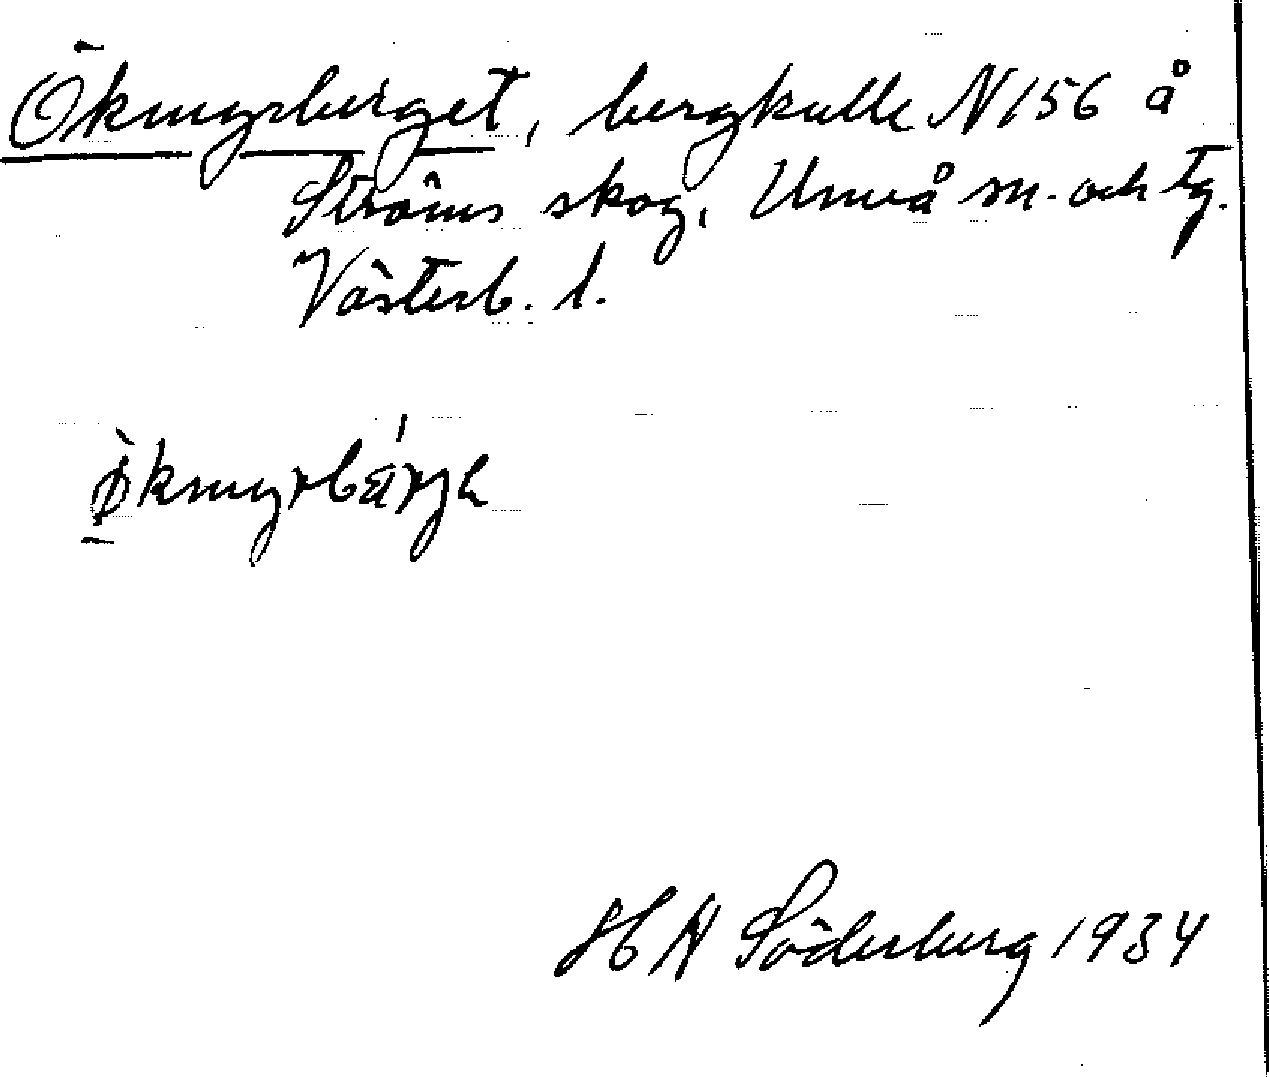 Ökmyrberget, bergkulle N 156 å
Ströms skog, Umeå sn. och tg.
Västerb. l.
H N Söderberg 1934